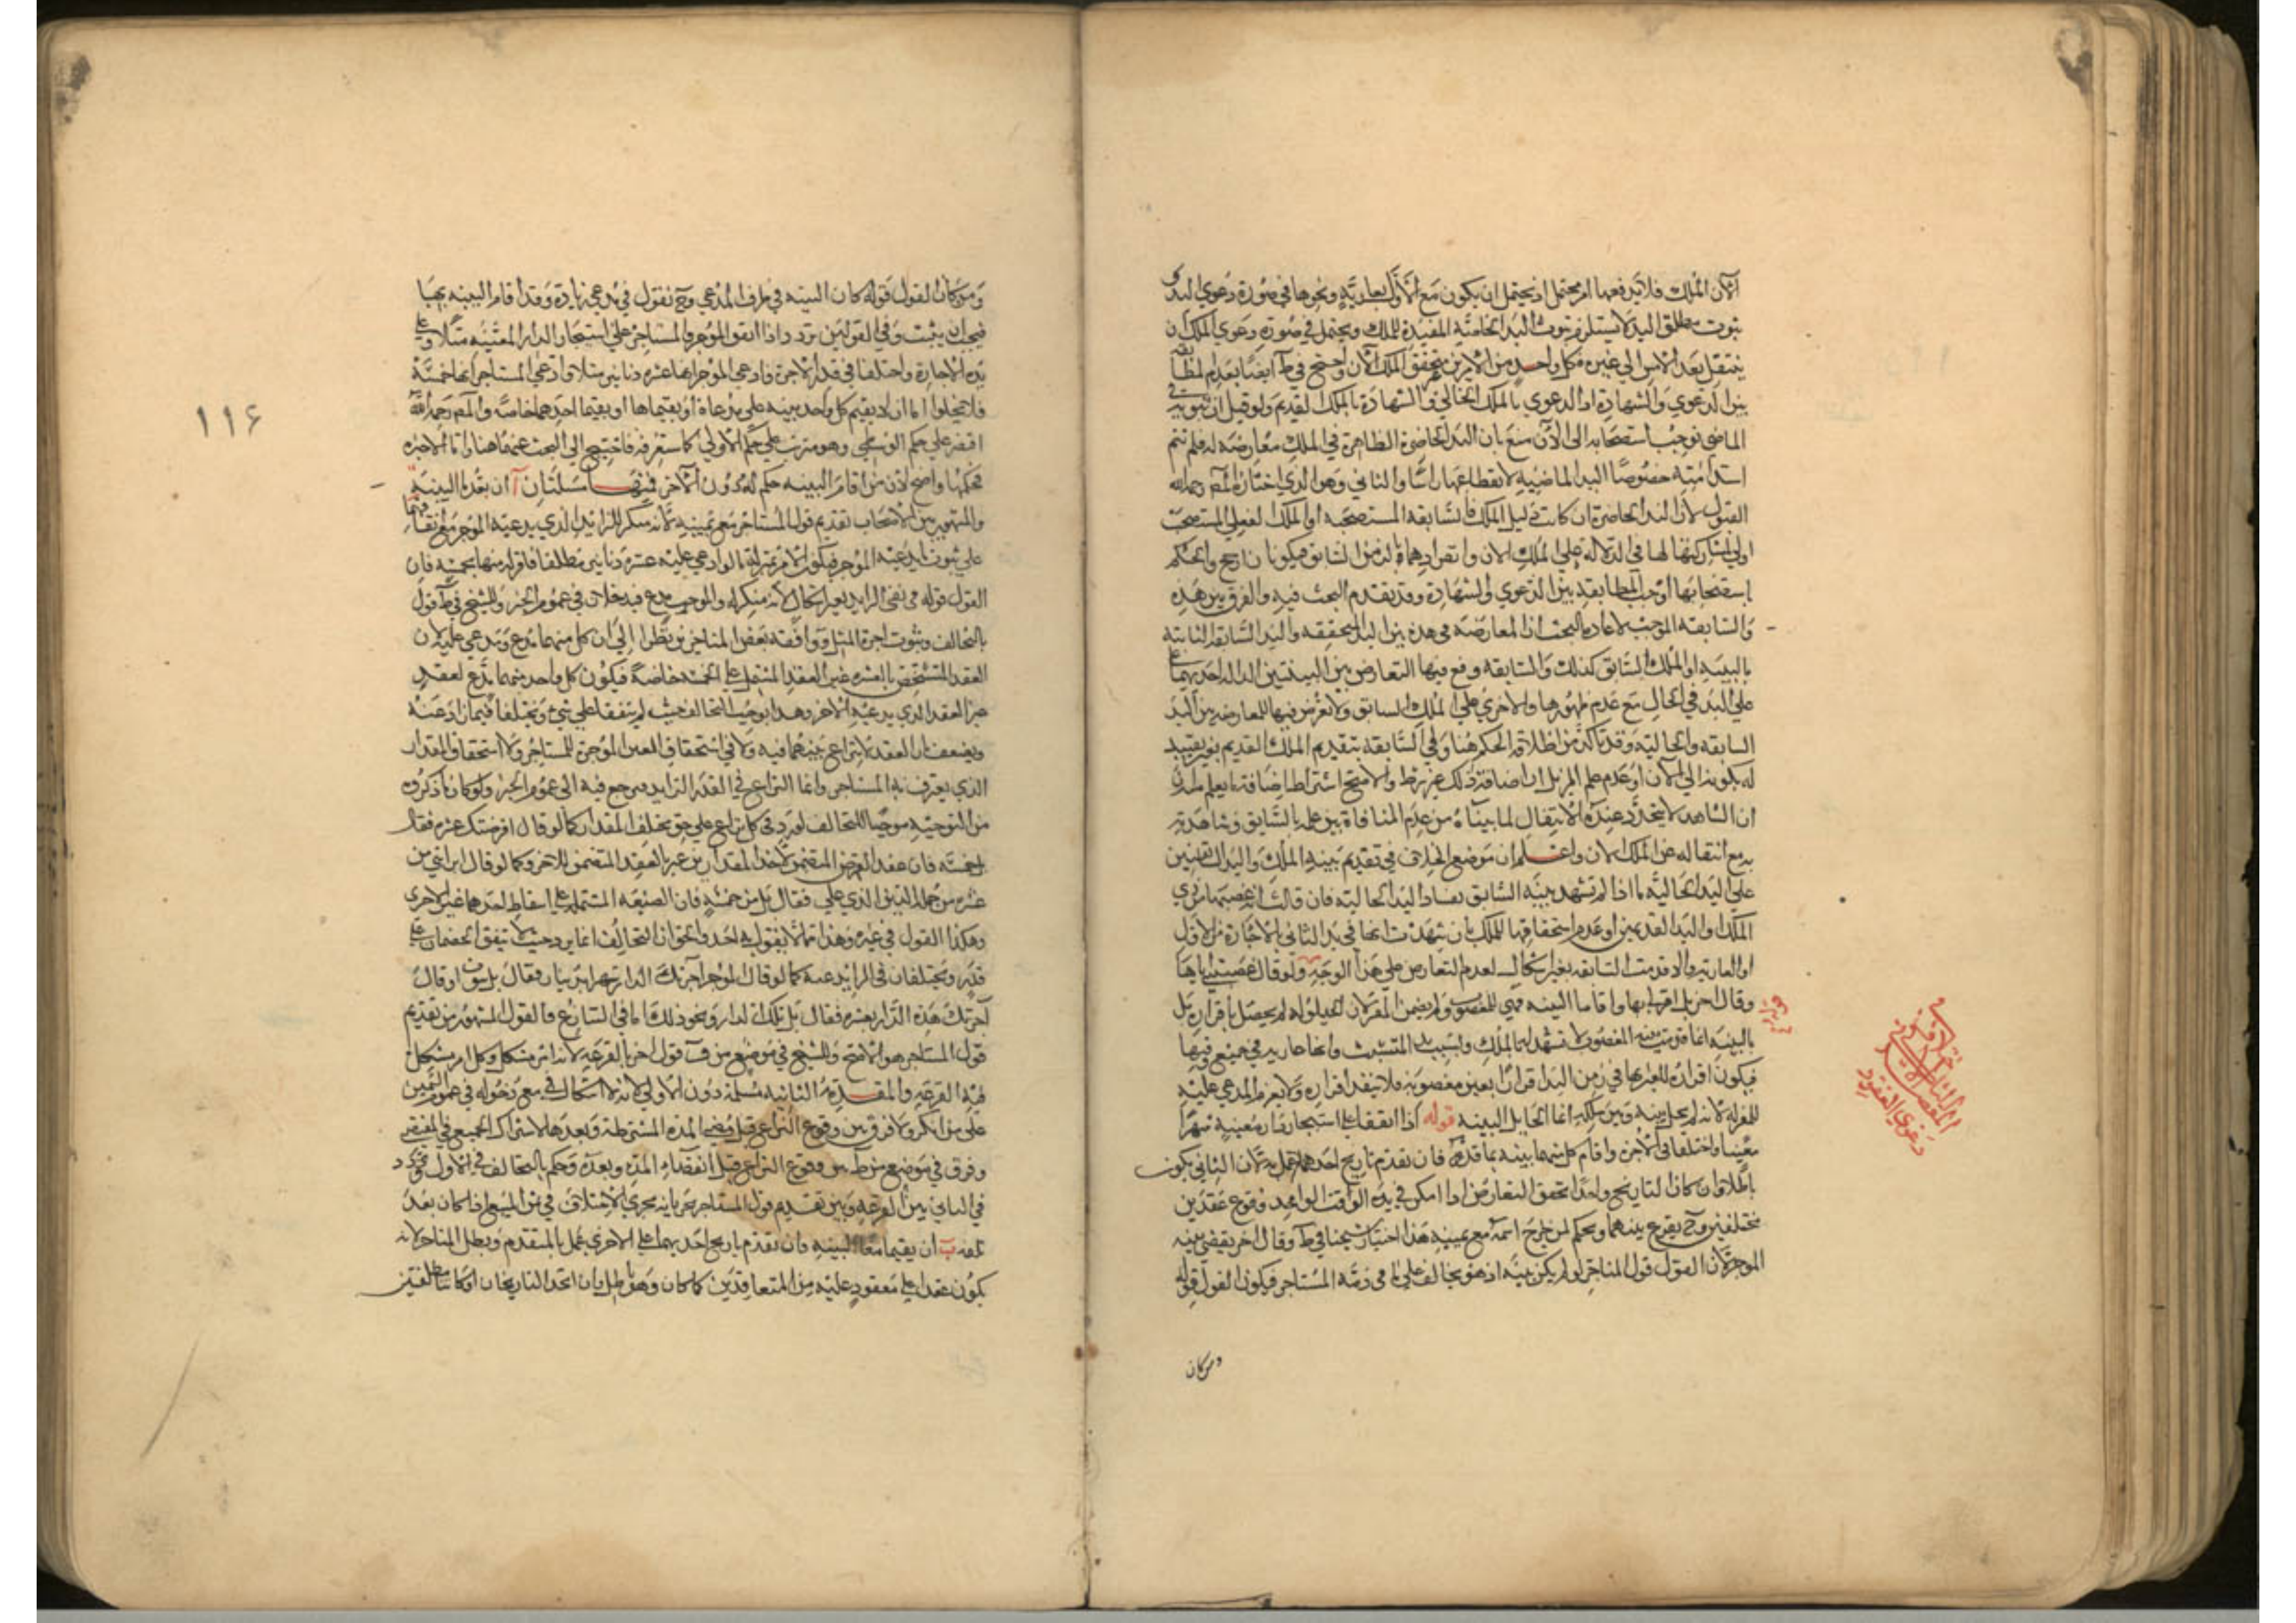 الآن الملك فلا يرفعها امر محتمل اذ يحتمل ان يكون مع الأول بعارية ونحوها في صورة دعوي اليد و
ثبوت مطلق اليد لا يستلزم ثبوت اليد الخاصة المفيدة للملك ويحتمل في صورة دعوي الملك ان
ينتقل بعد الامس الي غيره فكل واحد من الامرين متحقق الملك الآن واحتج في ط ايضا بعدم
بين الدعوي والشهادة اذ الدعوي بالملك الحالي والشهادة بالملك القديم ولو قيل ان ثبوته في
الماضي يوجب استصحابه الى الآن منع بان اليد الحاضرة الظاهرة في الملك معارضة له فلم تتم
استدامته خصوصا اليد الماضية لانقطاعها راسا والثاني وهو الذي اختاره المص رحمه الله
القبول لأن اليد الحاضرة ان كانت دليل الملك فالسابقة المستصحبة او الملك الفعلي المستصحب
اولي لمشاركتها لها في الدلالة علي الملك الان وانفرادهما بالزمن السابق فيكونان ارجح والحكم
باستصحابها اوجب المطابقة بين الدعوي والشهادة وقد تقدم البحث فيه والفرق بين هذه
والسابقة الموجب لاعادة البحث ان المعارضة في هذه بين اليد المتحققة واليد السابقة الثابتة
بالبينة او الملك السابق كذلك والسابقة وقع فيها التعارض بين البينتين الدالة احديهما علي
علي اليد في الحال مع عدم ظهورها والاخري علي الملك السابق ولا تعرض فيها للمعارضة بين اليد
السابقة والحالية وقد تاكد من اطلاقه الحكم هنا وفي السابقة بتقديم الملك القديم بغير تقييد
له بكونه الي الآن او عدم علم المزيل ان اضافة ذلك غير شرط والاصح اشتراط اضافة ما يعلم منه
ان الشاهد لا يتجدد عنده الانتقال لما بيناه من عدم المنافاة بين علمه بالسابق وشاهدته
به مع انتقاله عن الملك الان واعلم ان موضع الخلاف في تقديم بينة الملك واليد السابقين
علي اليد الحالية ما اذا لم تشهد بينة السابق بفساد اليد الحالية فان قالت انه غصبها من ذي
الملك او اليد القديمين او عدم استحقاقها للملك بان شهدت انها في يد الثاني بالاجارة من الاول
او العارية والا قدمت السابقة بغير اشكال لعدم التعارض علي هذا الوجه ولو قال غصبتني اياها
وقال اخر بل اقر لي بها واقاما البينة فهي للمغصوب ولم يضمن المقر لان الحيلولة لم يحصل باقراره بل
بالبينة انما قدمت بينة المغصوب لانها تشهد له بالملك وبسبب يد المتشبث وانها عارية في جميع
فيكون اقراره للغير بها في زمن اليد اقرارا بعين مغصوبة فلا ينفذ اقراره ولا يغرم المدعي عليه
للمقر له لانه لم يحل بينه وبين ملكه انما الحايل البينة قوله اذا اتفقا علي استيجار دار معينة شهرا
معينا واختلفا في الاجرة واقام كل منهما بينة بما قدره فان تقدم تاريخ احدهما عمل به لان الثاني يكون
باطلا وان كان التاريخ واحدا تحقق التعارض اذا امكن في يده الوقت الواحد وقوع عقدين
مختلفين وح يقرع بينهما ويحكم لمن خرج اسمه مع يمينه هذا اختيار شيخنا في ط وقال اخر يقضي ببينة
الموجر لان القول قول المستاجر لو لم يكن بينة اذ هو يخالف علي ما في ذمة المستاجر فيكون القول قوله
ومن كان
في
دعوي العقود
١١٦
ومن كان القول قوله كان البينة في طرف المدعي وح نقول في مدعي زيادة وقد اقام البينة بها
فيجب ان يثبت وفي القولين تردد اذا اتفق الموجر والمستاجر علي استيجار الدار المعينة مثلا وعلي
مدة الاجارة واختلفا في قدر الاجرة فادعي الموجر انها عشرة دنانير مثلا وادعي المستاجر انها خمسة
فلا يخلوا اما ان لا يقيم كل واحد بينة علي مدعاه او يقيماها او يقيمها احدهما خاصة والمص رحمه الله
اقتصر علي حكم الوسطي وهو مترتب علي حكم الاولي كما ستعرفه فاحتيج الي البحث عنهما هنا واما الاخيرة
فحكمها واضح لان من اقام البينة حكم له دون الآخر فهنا مسئلتان آ ان يفقدا البينة
والمشهور بين الاصحاب تقديم قول المستاجر مع يمينه لانه منكر للزايد الذي يدعيه الموجر مع اتفاقهما
علي ثبوت ما يدعيه الموجر فيكون الامر بمنزلة ما لو ادعي عليه عشرة دنانير مطلقا فاقر له منها بخمسة فان
القول قوله في نفي الزايد بغير اشكال لانه منكر له والموجر مدع فيدخلان في عموم الخبر وللشيخ في ط قول
بالتحالف وثبوت اجرة المثل ووافقه بعض المتاخرين نظرا الي ان كل منهما مدع ومدعي عليه لان
العقد المتشخص بالعشرة غير العقد المشتمل علي الخمسة خاصة فيكون كل واحد منهما مدع لعقد
غير العقد الذي يدعيه الاخر وهذا يوجب التحالف حيث لم يتفقا علي شيء ويختلفا فيما زاد عنه
ويضعف بان العقد لا نزاع بينهما فيه ولا في استحقاق العين الموجرة للمستاجر ولا استحقاق المقدار
الذي يعترف به المستاجر وانما النزاع في القدر الزايد فيرجع فيه الى عموم الخبر ولو كان ما ذكروه
من التوجيه موجبا للتحالف لورد في كل نزاع علي حق مختلف المقدار كما لو قال اقرضتك عشرة فقال
بل خمسة فان عقد القرض المتضمن لاحد المقدارين غير العقد المتضمن للاخر وكما لو قال ابراتني من
عشرة من جملة الدين الذي علي فقال بل من خمسة فان الصيغة المشتملة علي اسقاط احدهما غير الاخرى
وهكذا القول في غيره وهذا مما لا يقول به احد والحق ان التحالف انما يرد حيث لا يتفق الخصمان علي
قدر ويختلفان في الزايد عنه كما لو قال الموجر آجرتك الدار شهرا بدينار فقال بل بثوب او قال
آجرتك هذه الدار بعشرة فقال بل تلك الدار ونحو ذلك اما في المتنازع فالقول المشهور من تقديم
قول المستاجر هو الاصح وللشيخ في موضع من ف قول اخر بالقرعة لانه امر مشكل وكل امر مشكل
فيه القرعة والمقدمة الثانية مسلمة دون الاولي لانه لا اشكال في مع دخوله في عموم اليمين
علي من انكر ولا فرق بين وقوع النزاع قبل مضي المدة المشترطة وبعدها لاشتراك الجميع في المقتضي
وفرق في موضع من ط بين وقوع النزاع قبل انقضاء المدة وبعده وحكم بالتحالف في الاول وتردد
في الثاني بين القرعة وبين تقديم قول المستاجر مع يمينه مجري الاختلاف في ثمن المبيع اذا كان بعد
تلفه ب ان يقيما معا البينة فان تقدم تاريخ احديهما علي الاخري عمل بالمتقدم وبطل المتاخر لانه
يكون عقدا علي معقود عليه من المتعاقدين كما كان وهو باطل وان اتحد التاريخان او كانتا مطلقتين